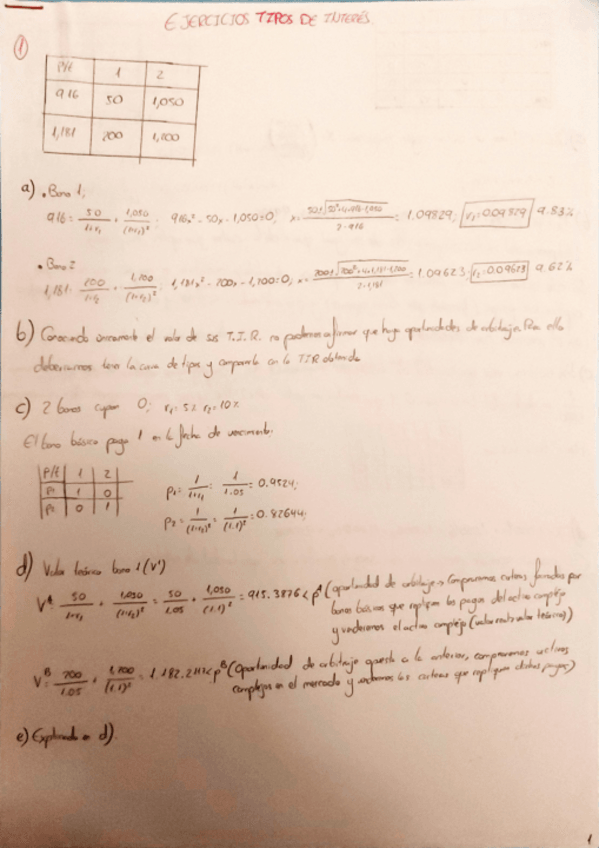 EJERCICIOS TIPOS DE INTERÉS.
①
P/t 1 2
916 50 1,050
1,181 200 1,100
a) • Bono 1;
916 = 50/(1+r₁) + 1,050/(1+r₁)² = 916x² - 50x - 1,050=0; x= (50±√(50²+4·916·1,050))/(2·916) = 1.09829; r₁=0.09829 9.83%
• Bono 2
1,181 = 200/(1+r₂) + 1,100/(1+r₂)²; 1,181x² - 200x - 1,100=0; x= (200±√(200²+4·1,181·1,100))/(2·1,181) = 1.09623 r₂=0.09623 9.62%
b) Conociendo únicamente el valor de sus T.I.R. no podemos afirmar que haya oportunidades de arbitraje. Para ello
deberíamos tener la curva de tipos y compararla con la TIR obtenida
c) 2 bonos cupón 0; r₁= 5% r₂=10%
El bono básico paga 1 en la fecha de vencimiento:
P/t 1 2
P₁ 1 0
P₂ 0 1
P₁= 1/(1+r₁) = 1/1.05 = 0.9524;
P₂= 1/(1+r₂)² = 1/(1.1)² = 0.82644;
d) Valor teórico bono 1 (V¹)
V^A= 50/(1+r₁) + 1,050/(1+r₂)² = 50/1.05 + 1,050/(1.1)² = 915.3876 < p^A (oportunidad de arbitraje → compraremos carteras formadas por
bonos básicos que repliquen los pagos del activo complejo
y venderemos el activo complejo (valor real > valor teórico))
V^B= 200/1.05 + 1,100/(1.1)² = 1.182.2117 < p^B (Oportunidad de arbitraje opuesta a la anterior, compraremos activos
complejos en el mercado y venderemos las carteras que repliquen dichos pagos)
e) Explicado en d).
1